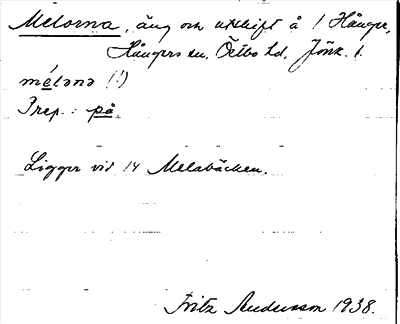 Melorna, äng och utskift å 1 Hånger,
Hångers sn, Östbo hd, Jönk. l.
mélənə (!)
Prep.: på
Ligger vid 14 Melabäcken.
Fritz Andersson 1938.